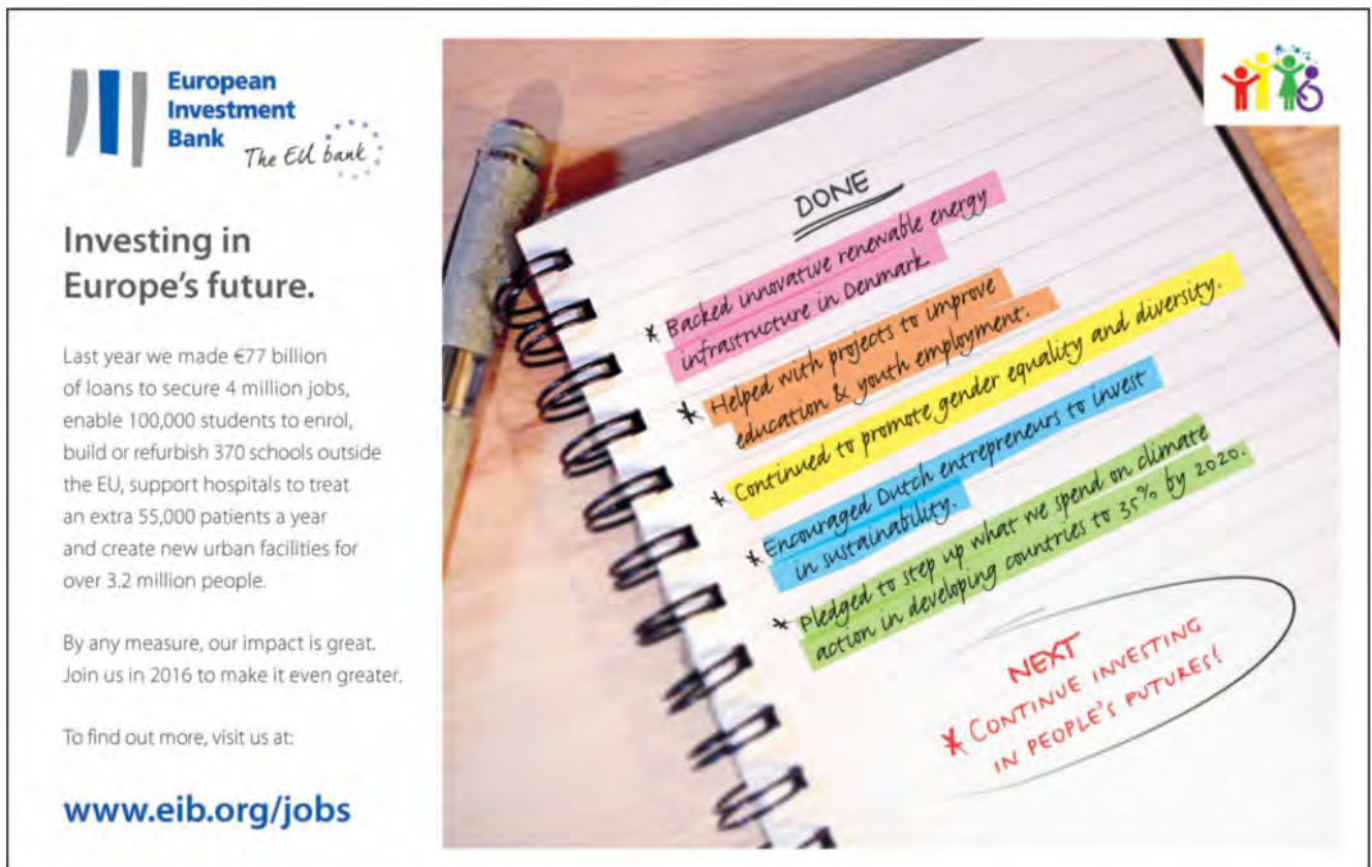 European
Investment
Bank
The EU bank
Investing in
Europe's future.
Last year we made €77 billion
of loans to secure 4 million jobs,
enable 100,000 students to enrol,
build or refurbish 370 schools outside
the EU, support hospitals to treat
an extra 55,000 patients a year
and create new urban facilities for
over 3.2 million people.
By any measure, our impact is great.
Join us in 2016 to make it even greater.
To find out more, visit us at:
www.eib.org/jobs
DONE
* Backed innovative renewable energy
infrastructure in Denmark.
* Helped with projects to improve
education & youth employment.
* Continued to promote gender equality and diversity.
* Encouraged Dutch entrepreneurs to invest
in sustainability.
* Pledged to step up what we spend on climate
action in developing countries to 35% by 2020.
NEXT
* CONTINUE INVESTING
IN PEOPLE'S FUTURES!